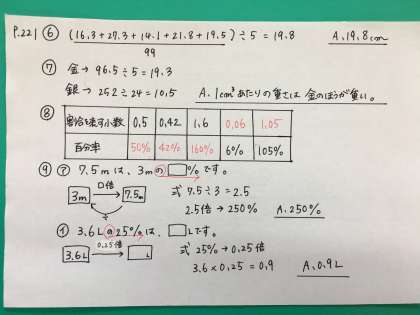 P.221 ⑥ (16.3+27.3+14.1+21.8+19.5)÷5=19.8 A.19.8cm
99
⑦ 金→ 96.5÷5=19.3
銀→ 252÷24=10.5 A.1cm³あたりの重さは 金のほうが重い。
⑧ 割合を表す小数 0.5 0.42 1.6 0.06 1.05
百分率 50% 42% 160% 6% 105%
⑨ ㋐ 7.5mは、3mの□%です。
□倍
3m → 7.5m 式 7.5÷3=2.5
÷ 2.5倍→250% A.250%
㋑ 3.6Lの25%は、□Lです。
0.25倍 式 25%→0.25倍
3.6L → □L 3.6×0.25=0.9 A.0.9L